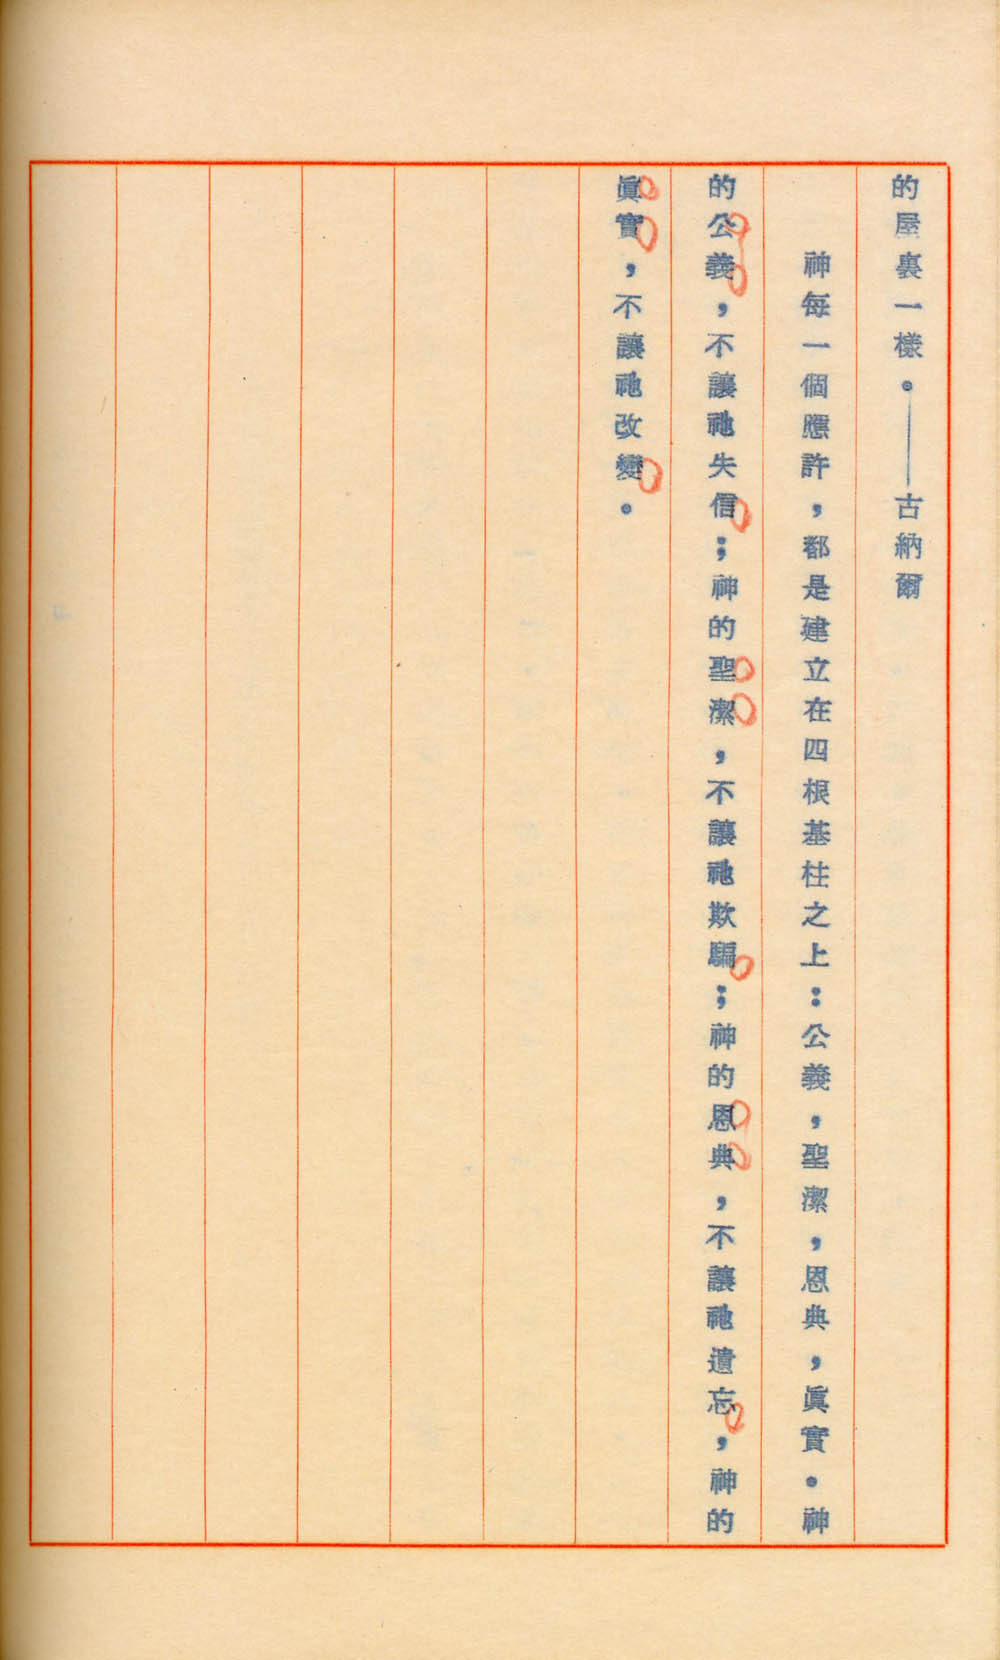 的屋裏一樣。——古納爾
神每一個應許，都是建立在四根基柱之上：公義，聖潔，恩典，眞實。神
的公義，不讓祂失信；神的聖潔，不讓祂欺騙；神的恩典，不讓祂遺忘，神的
眞實，不讓祂改變。